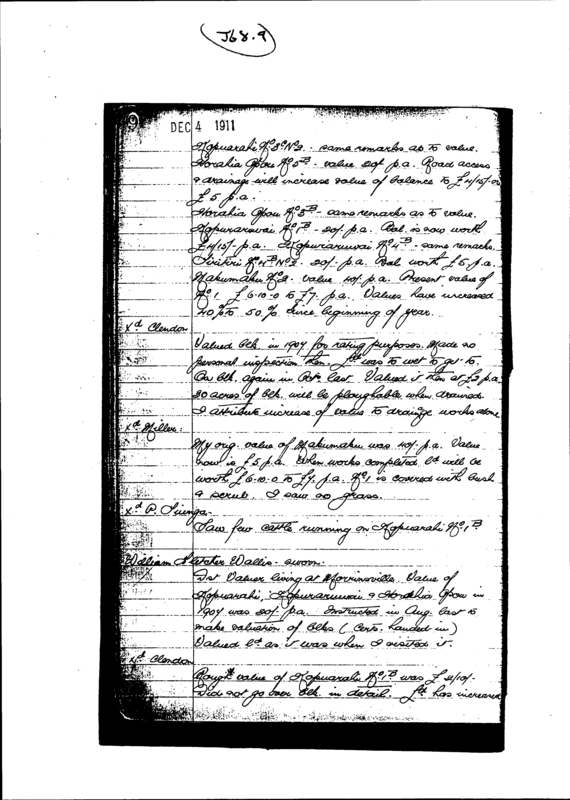 J68.9
9
DEC 4 1911
Kopuarahi No 3C No 2 - same remarks as to value.
Horahia Opou No 5B - value 20/- p.a. Road access
& drainage will increase value of balance to £4/15/- or
£5 p.a.
Horahia Opou No 3B - same remarks as to value.
Kopuraruwai No 1B - 20/- p.a. Bal. is now worth
£4/15/- p.a. Kopuraruwai No 4B - same remarks.
No 4B No 2 - 20/- p.a. Bal worth £5 p.a.
Makumaku No 2 - value 40/- p.a. Present value of
No 1 £6-10-0 to £7. p.a. Values have increased
40% to 50% since beginning of year.
Xd Clendon
Valued blk. in 1907 for rating purposes. Made no
personal inspection then. Ld was to wet to go to.
On blk. again in Octr last. Valued it then at £2 p.a.
20 acres of blk. will be ploughable when drained.
I attribute increase of value to drainage works alone
Xd Miller:
My orig. value of Makumaku was 40/- p.a. Value
now is £5 p.a. When works completed ld will be
worth £6-10-0 to £7. p.a. No 1 is covered with bush
& scrub. I saw no grass.
Xd P.
Saw few cattle running on Kopuarahi No 1B
William Fletcher Wallis - sworn.
Dist Valuer living at Morrinsville. Value of
Kopuarahi, Kopuraruwai & Horahia Opou in
1907 was 20/- p.a. Instructed in Aug. last to
make valuation of blks (Certs. handed in)
Valued ld as it was when I visited it.
Xd Clendon
Rough value of Kopuarahi No 1B was £2/10/-
Did not go over blk in detail. Ld has increased